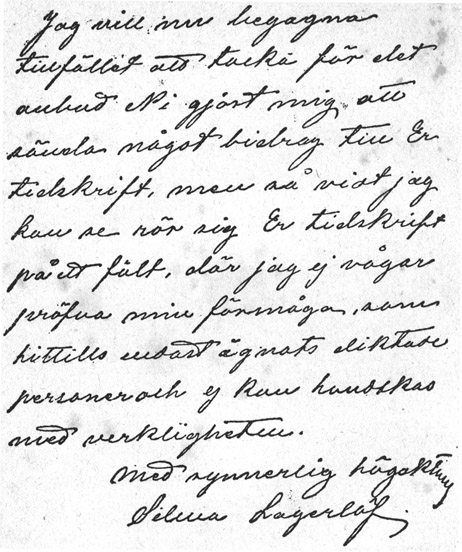 Jag vill nu begagna
tillfället att tacka för det
anbud Ni gjort mig att
sända något bidrag till Er
tidskrift, men så vidt jag
kan se rör sig Er tidskrift
på ett fält, där jag ej vågar
pröfva min förmåga, som
hittills endast ägnats diktade
personer och ej kan handskas
med verkligheten.
Med synnerlig högaktning
Selma Lagerlöf.